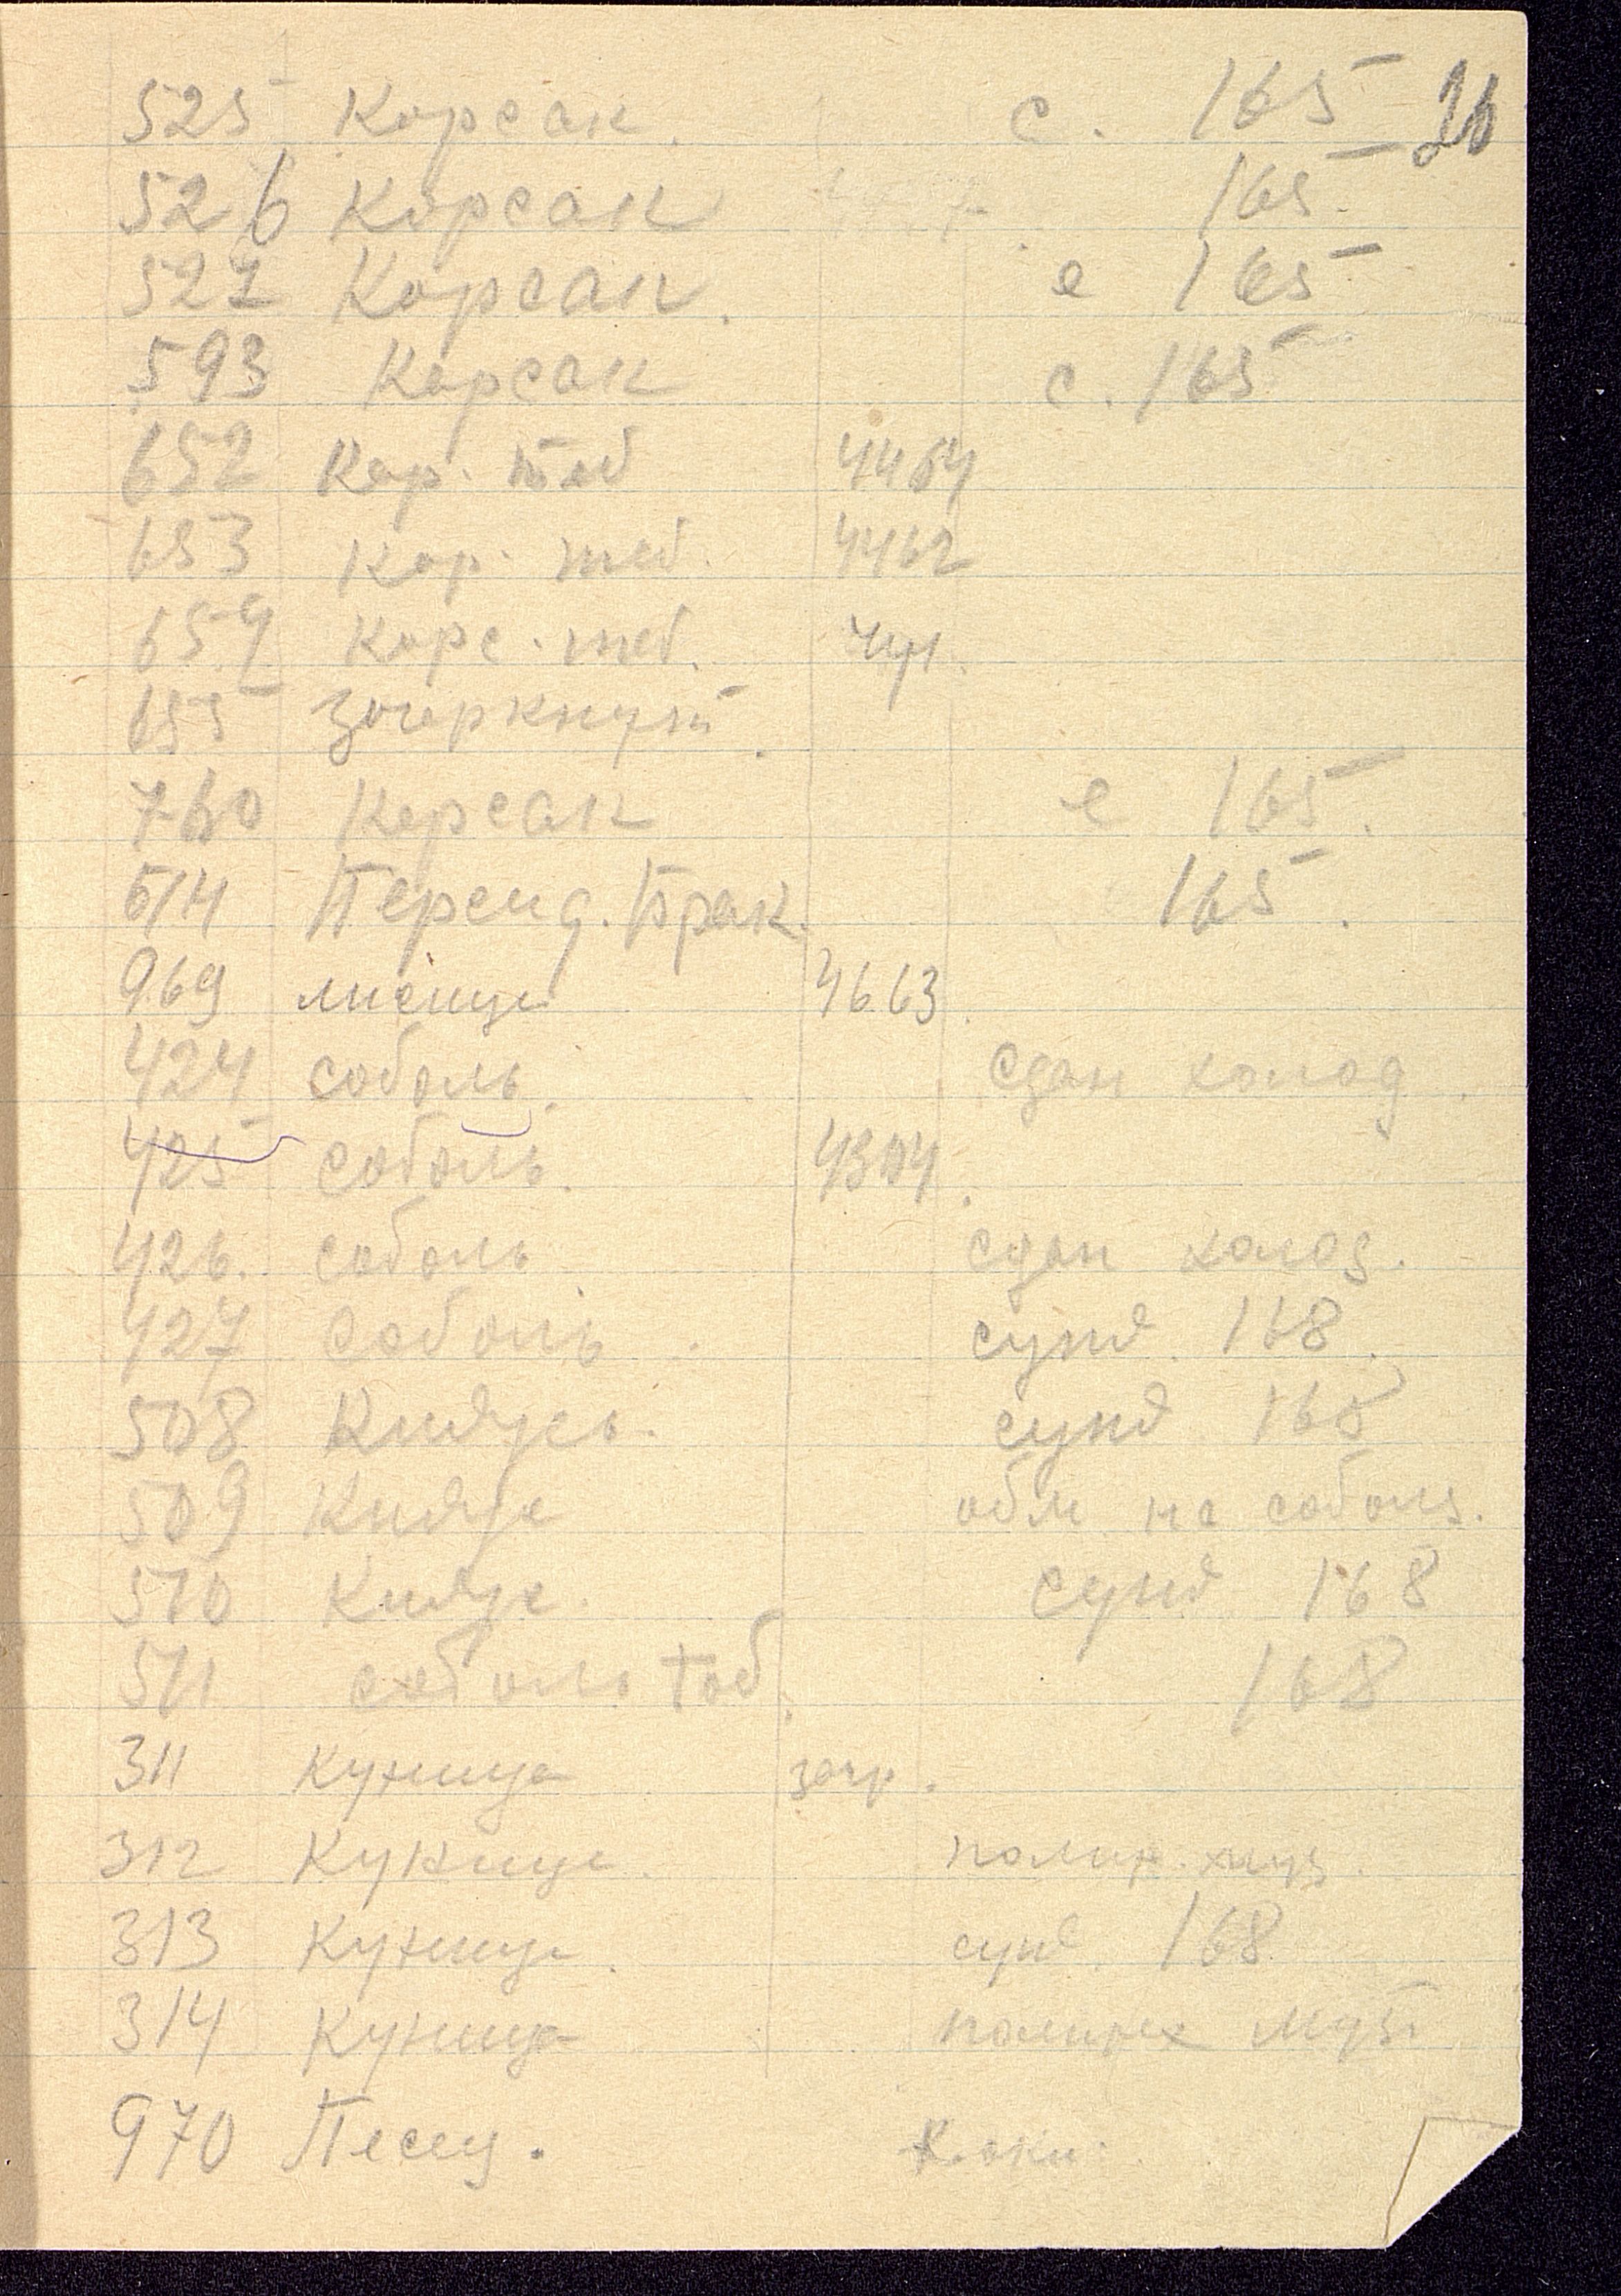 525 Корсак. с. 165 26
526 Корсак 165
527 Корсак. с 165
593 Корсак с. 165
652 Кор. тоб 4464
653 Кор. тоб. 4462
659 Корс. тоб.
655 Зачеркнутый.
760 Корсак с 165.
514 165.
969 лисица 4663.
424 соболь. сдан холод.
425 соболь. 4304.
426. соболь сдан холод.
427 Соболь. сунд. 168.
508 Кидусь. сунд 168
509 Кидус обм на соболь.
510 Кидус. сунд 168
511 соболь тоб. 168
311 Куница зачр.
312 Куница.
313 Куница. сунд. 168
314 Куница
970 Песец.